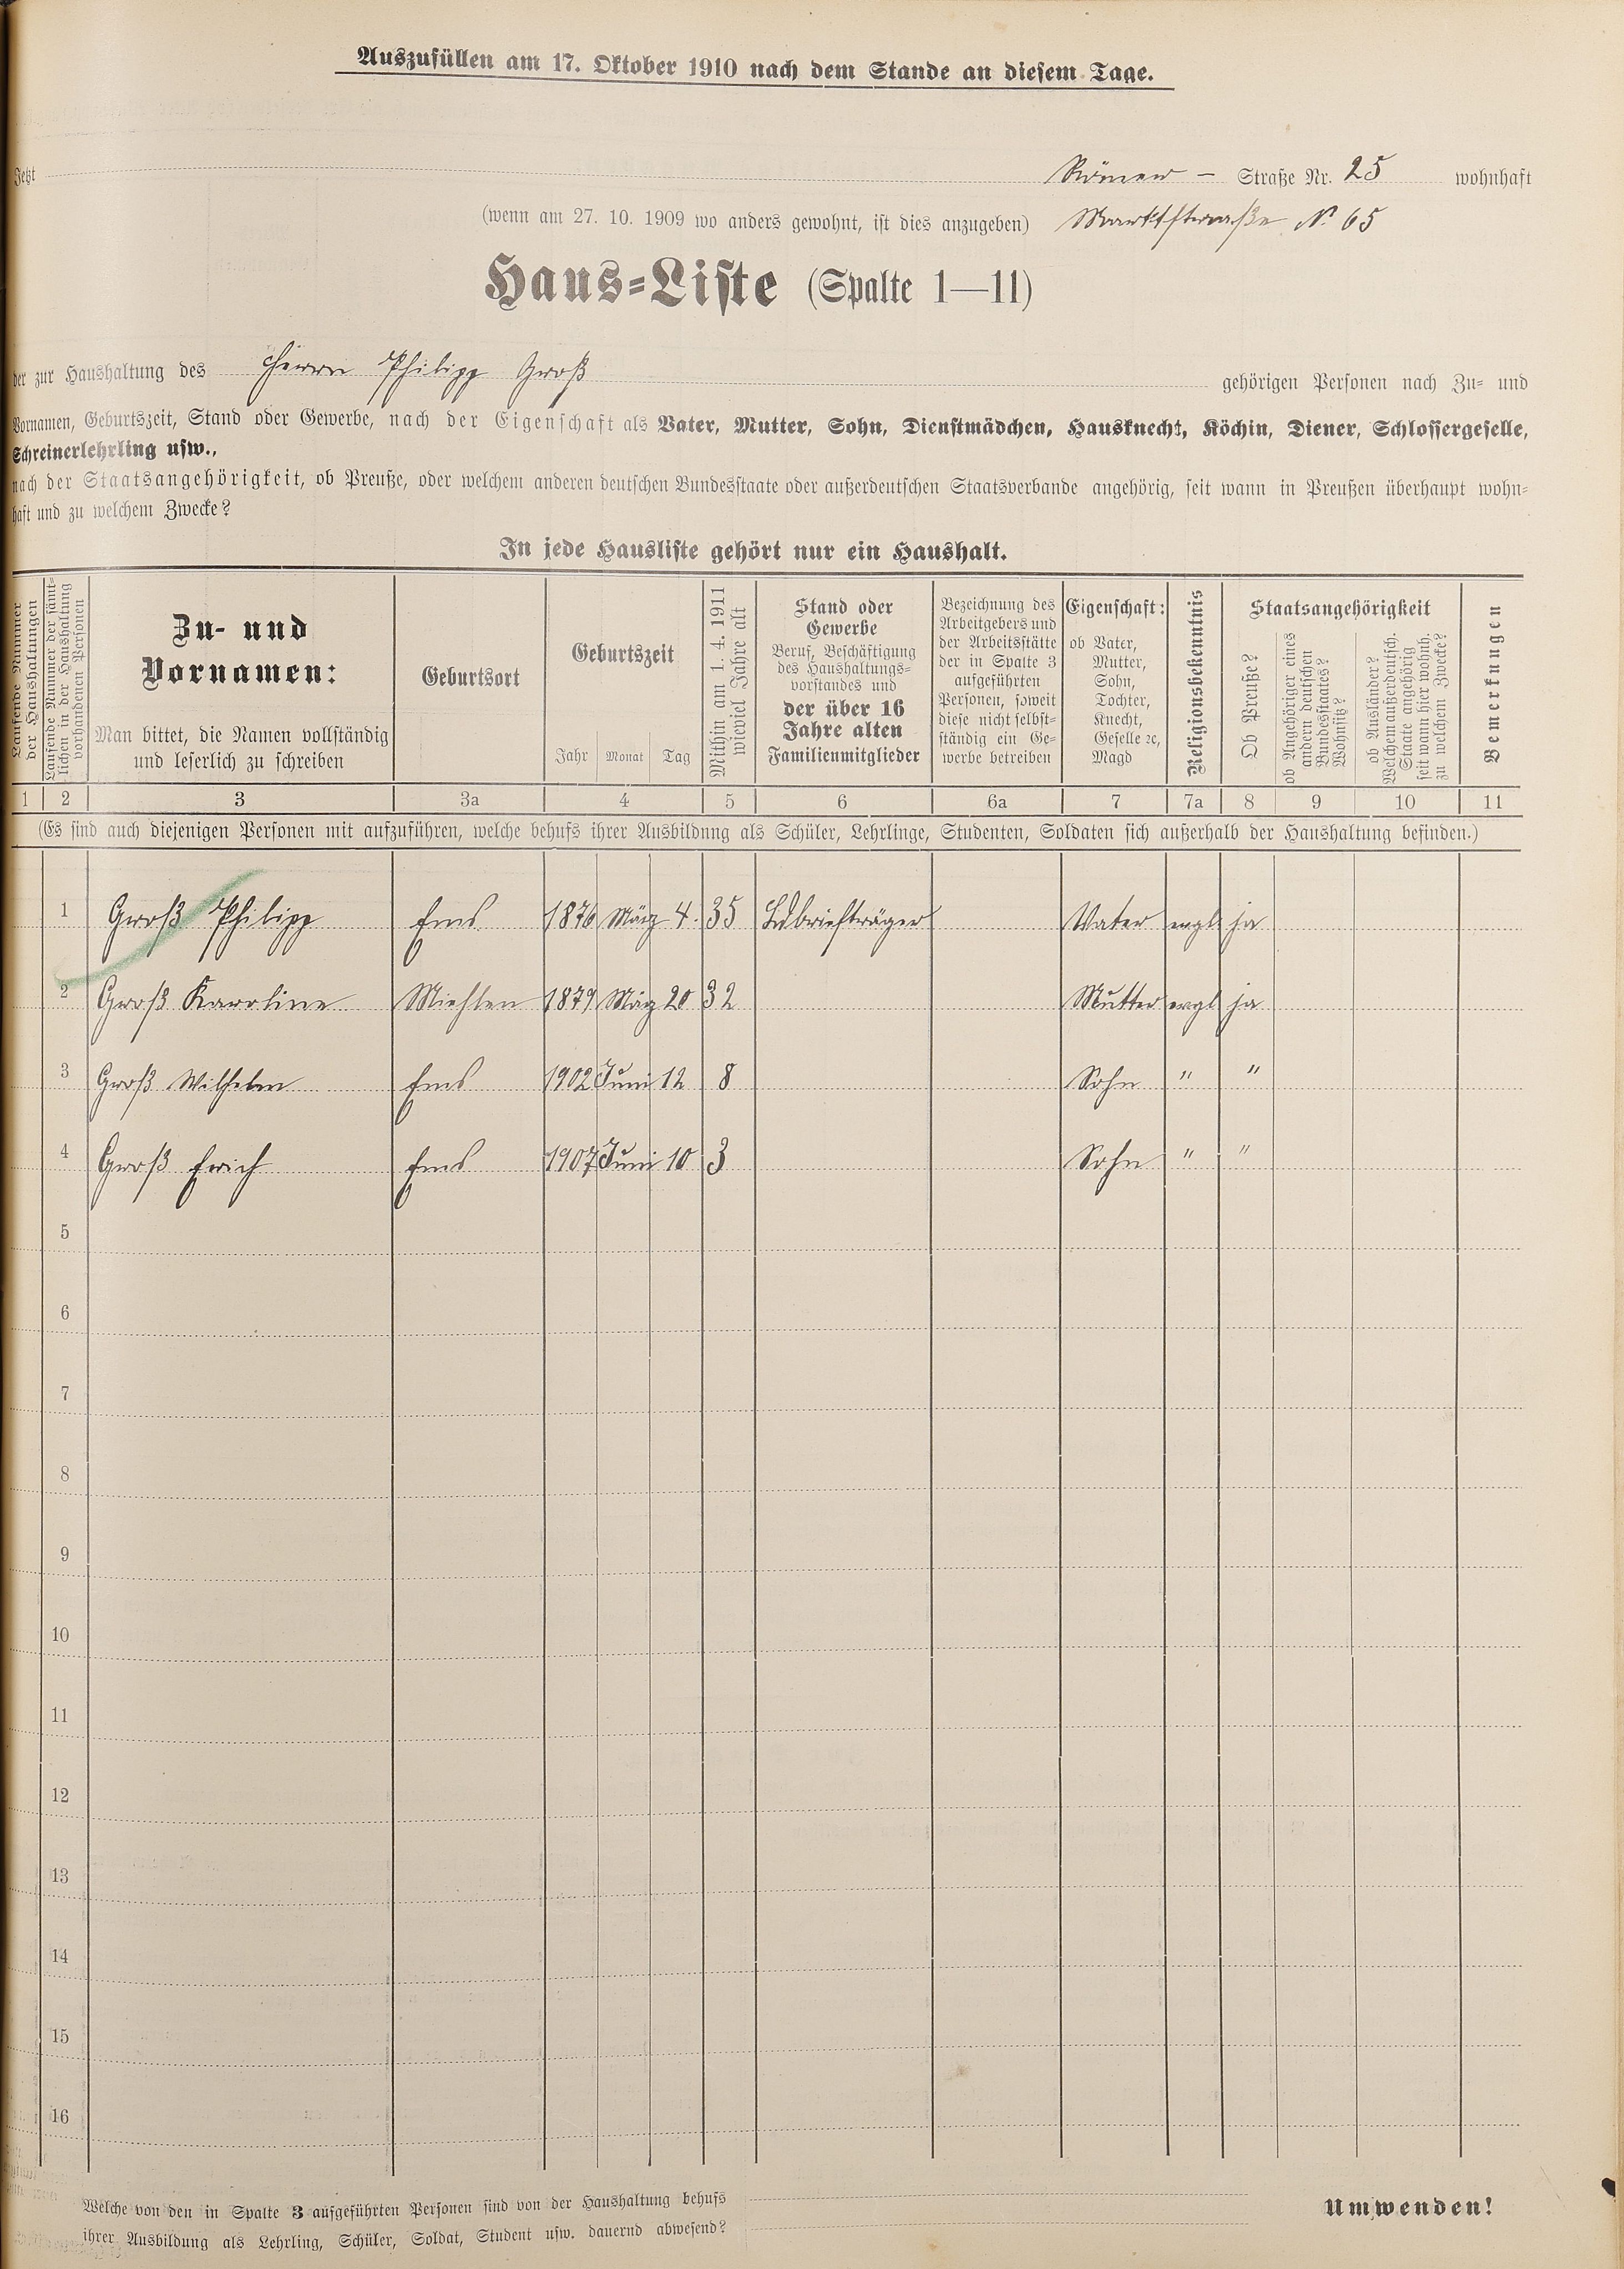 Auszufüllen am 17. Oktober 1910 nach dem Stande an diesem Tage.
Jetzt Römer - Straße Nr. 25 wohnhaft
(wenn am 27. 10. 1909 wo anders gewohnt, ist dies anzugeben) Marktstraße № 65
Haus-Liste (Spalte 1—11)
der zur Haushaltung des Herrn Philipp Groß gehörigen Personen nach Zu- und
Vornamen, Geburtszeit, Stand oder Gewerbe, nach der Eigenschaft als Vater, Mutter, Sohn, Dienstmädchen, Hausknecht, Köchin, Diener, Schlossergeselle,
Schreinerlehrling usw.,
nach der Staatsangehörigkeit, ob Preuße, oder welchem anderen deutschen Bundesstaate oder außerdeutschen Staatsverbande angehörig, seit wann in Preußen überhaupt wohn-
haft und zu welchem Zwecke?
In jede Hausliste gehört nur ein Haushalt.
Laufende Nummer
der Haushaltungen
Laufende Nummer der sämt-
lichen in der Haushaltung
vorhandenen Personen
Zu- und
Vornamen:
Man bittet, die Namen vollständig
und leserlich zu schreiben
Geburtsort
Geburtszeit
Jahr Monat Tag
Mithin am 1. 4. 1911
wieviel Jahre alt
Stand oder
Gewerbe
Beruf, Beschäftigung
des Haushaltungs-
vorstandes und
der über 16
Jahre alten
Familienmitglieder
Bezeichnung des
Arbeitgebers und
der Arbeitsstätte
der in Spalte 3
aufgeführten
Personen, soweit
diese nicht selbst-
ständig ein Ge-
werbe betreiben
Eigenschaft:
ob Vater,
Mutter,
Sohn,
Tochter,
Knecht,
Geselle ꝛc,
Magd
Religionsbekenntnis
Staatsangehörigkeit
Ob Preuße?
ob Angehöriger eines
andern deutschen
Bundesstaates?
Wohnsitz?
ob Ausländer?
Welchem außerdeutsch.
Staate angehörig
seit wann hier wohnh.
zu welchem Zwecke?
Bemerkungen
1 2 3 3a 4 5 6 6a 7 7a 8 9 10 11
(Es sind auch diejenigen Personen mit aufzuführen, welche behufs ihrer Ausbildung als Schüler, Lehrlinge, Studenten, Soldaten sich außerhalb der Haushaltung befinden.)
1 Groß Philipp Ems 1876 März 4. 35 Ldbriefträger Vater evgl ja
2 Groß Karoline Miehlen 1879 März 20 32 Mutter evgl ja
3 Groß Wilhelm Ems 1902 Juni 12 8 Sohn " "
4 Groß Erich Ems 1907 Juni 10 3 Sohn " "
5
6
7
8
9
10
11
12
13
14
15
16
Welche von den in Spalte 3 aufgeführten Personen sind von der Haushaltung behufs
ihrer Ausbildung als Lehrling, Schüler, Soldat, Student usw. dauernd abwesend?
Umwenden!